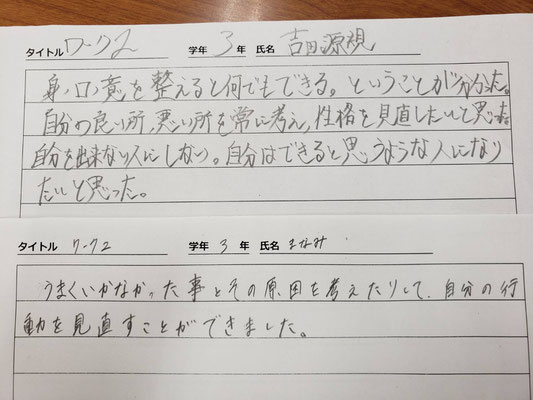 タイトル ワーク2 学年 3年 氏名 吉田源視
身、口、意を整えると何でもできる。ということが分かった。
自分の良い所、悪い所を常に考え、性格を見直したいと思った。
自分を出来ない人にしない。自分はできると思うような人になり
たいと思った。
タイトル ワーク2 学年 3年 氏名 まなみ
うまくいかなかった事とその原因を考えたりして、自分の行
動を見直すことができました。